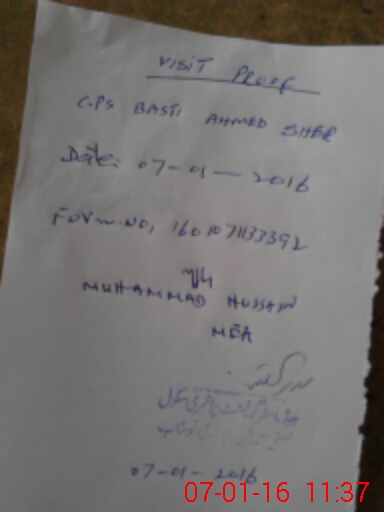 VISIT Proof
G.P.S BASTI AHMED SHER
Date: 07-01-2016
Form NO, 1601071133392
MUHAMMAD HUSSAIN
MEA
07-01-2016
07-01-16 11:37